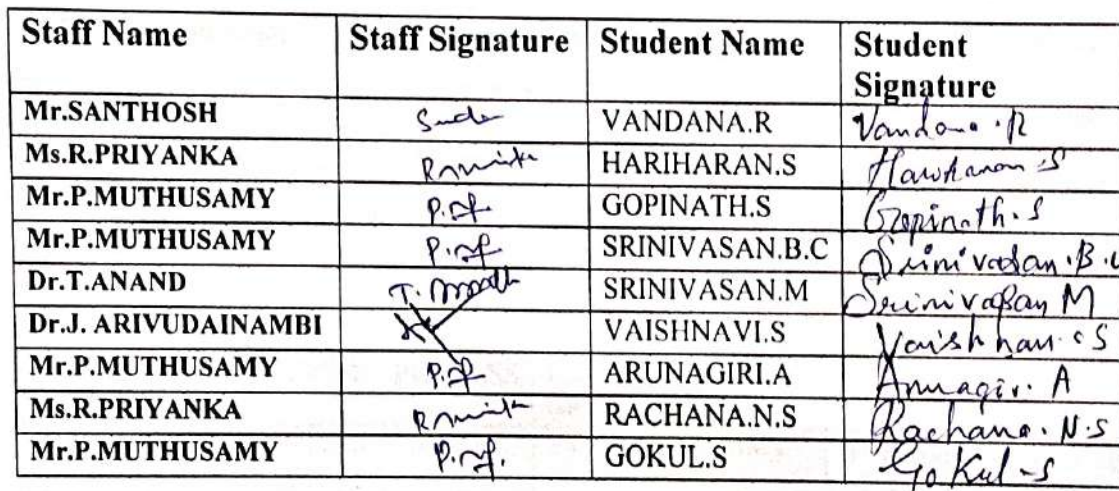 Staff Name Staff Signature Student Name Student Signature
Mr.SANTHOSH VANDANA.R Vandana.R
Ms.R.PRIYANKA HARIHARAN.S Hariharan S
Mr.P.MUTHUSAMY GOPINATH.S Gopinath.S
Mr.P.MUTHUSAMY SRINIVASAN.B.C Srinivasan.B.C
Dr.T.ANAND T. SRINIVASAN.M Srinivasan M
Dr.J. ARIVUDAINAMBI VAISHNAVI.S
Mr.P.MUTHUSAMY ARUNAGIRI.A Arunagiri A
Ms.R.PRIYANKA RACHANA.N.S Rachana.N.S
Mr.P.MUTHUSAMY GOKUL.S Gokul-S